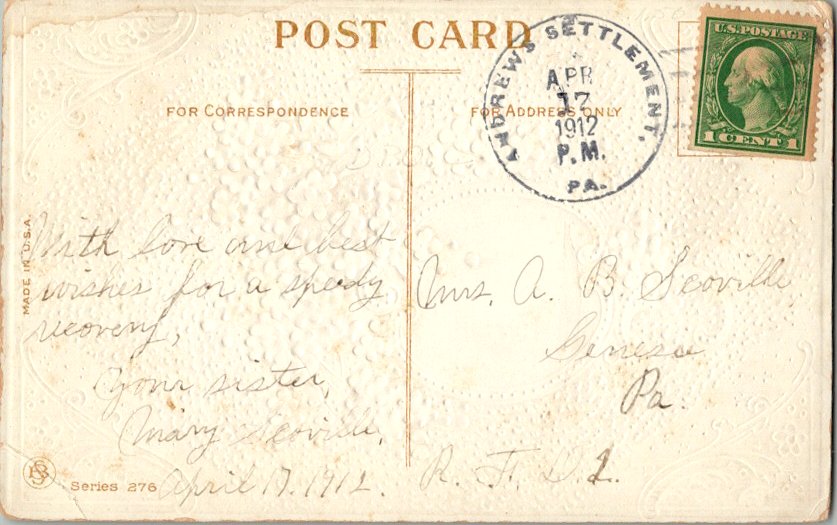 POST CARD
ANDREWS SETTLEMENT,
APR
17
1912
P.M.
PA.
U.S. POSTAGE
1 CENT 1
FOR CORRESPONDENCE
FOR ADDRESS ONLY
MADE IN U.S.A.
With love and best
wishes for a speedy
recovery,
Your sister,
Mary Scoville,
April 17, 1912.
Mrs. A. B. Scoville
Genesee
Pa.
R. F. D. 1.
Series 276